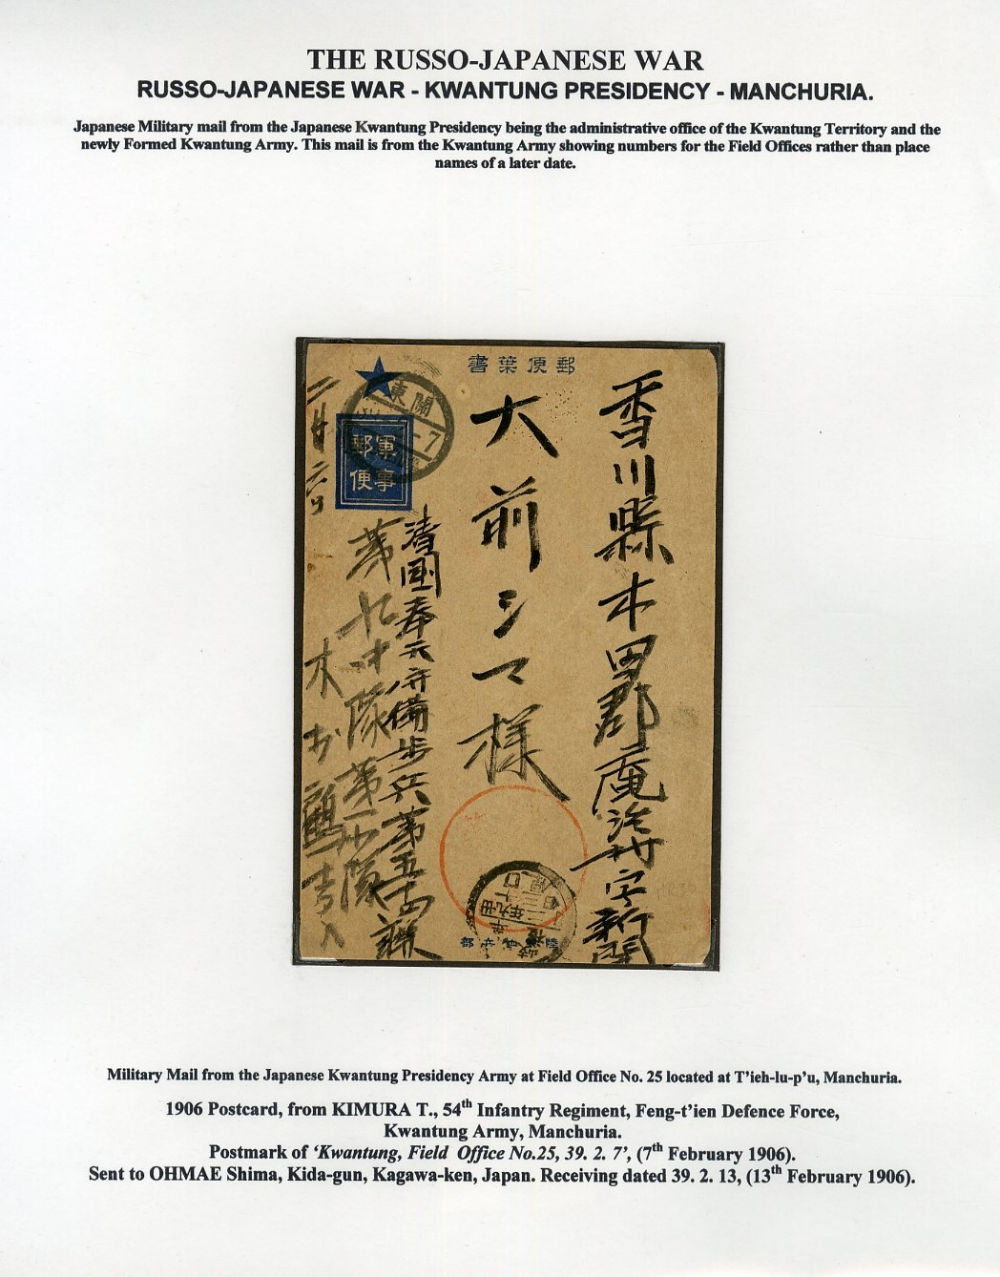 THE RUSSO-JAPANESE WAR
RUSSO-JAPANESE WAR - KWANTUNG PRESIDENCY - MANCHURIA.
Japanese Military mail from the Japanese Kwantung Presidency being the administrative office of the Kwantung Territory and the
newly Formed Kwantung Army. This mail is from the Kwantung Army showing numbers for the Field Offices rather than place
names of a later date.
書葉便郵
東關
7
軍事
郵便
香川縣木田郡庵治村字新開
大前シマ様
清國奉天守備歩兵第五十四聯
第十中隊第一小隊
二月六日
卅九年
Military Mail from the Japanese Kwantung Presidency Army at Field Office No. 25 located at T'ieh-lu-p'u, Manchuria.
1906 Postcard, from KIMURA T., 54th Infantry Regiment, Feng-t'ien Defence Force,
Kwantung Army, Manchuria.
Postmark of 'Kwantung, Field Office No.25, 39. 2. 7', (7th February 1906).
Sent to OHMAE Shima, Kida-gun, Kagawa-ken, Japan. Receiving dated 39. 2. 13, (13th February 1906).